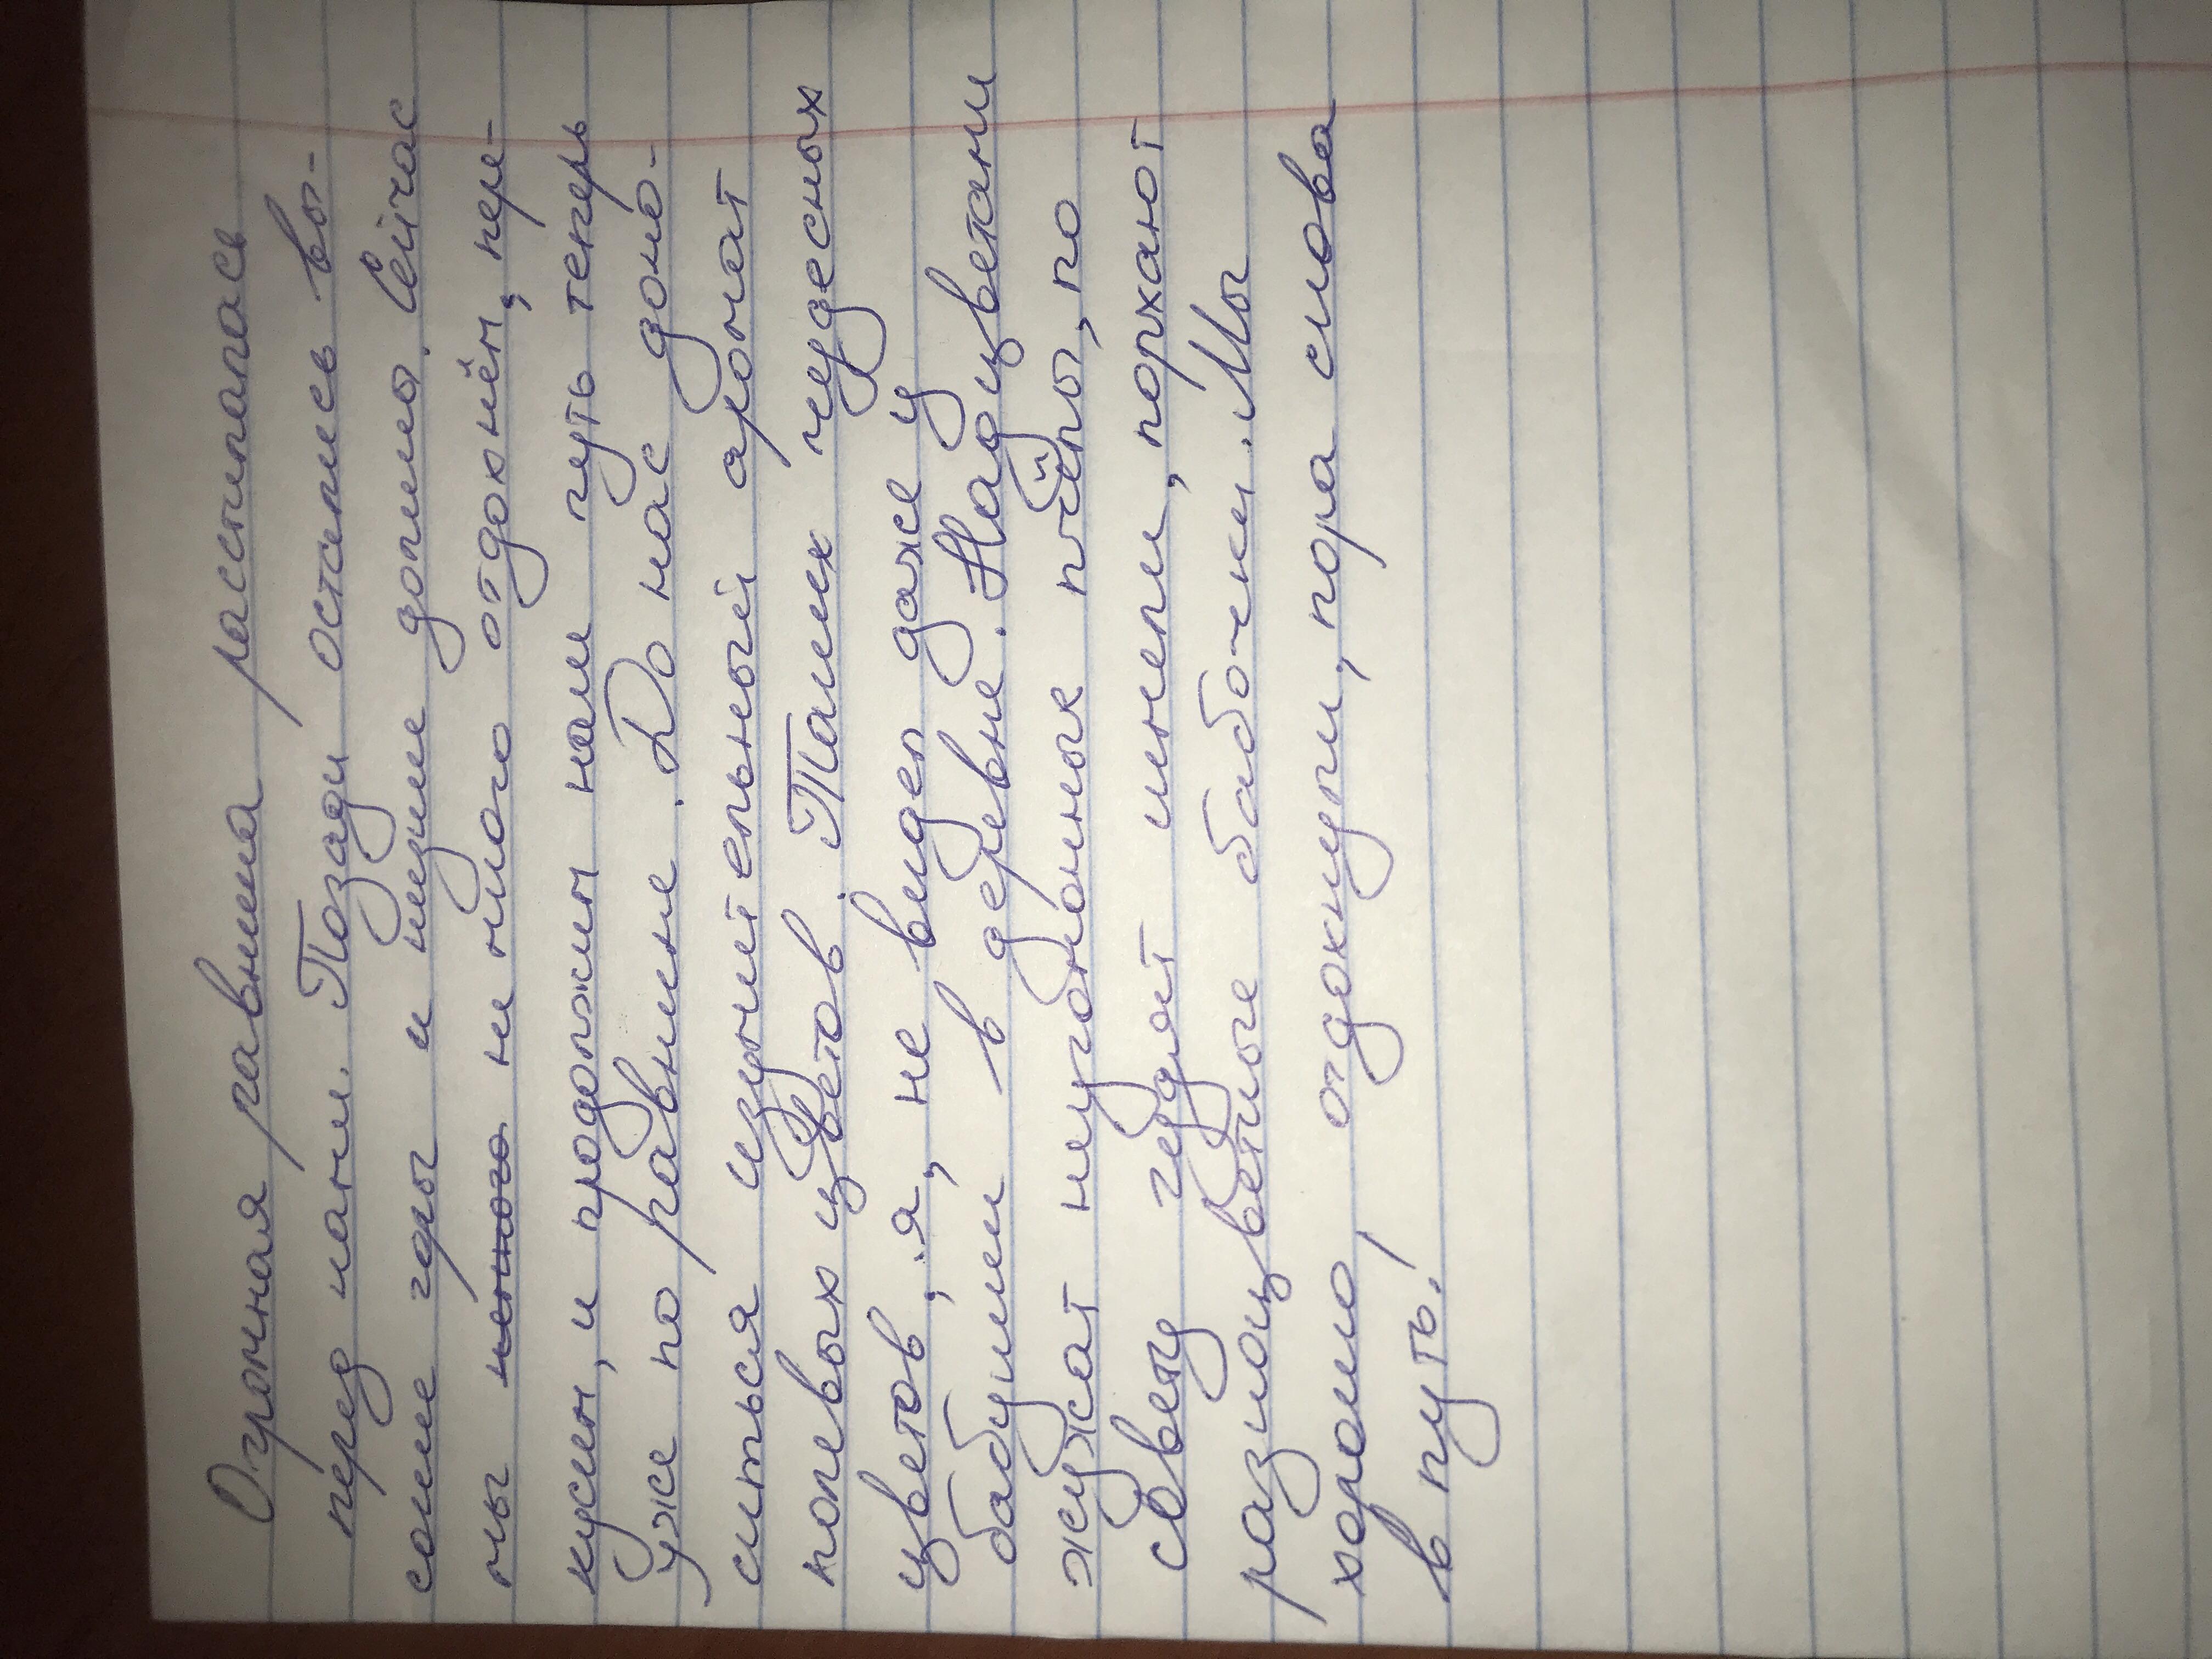 Огромная равнина расстилалась
перед нами. Позади остались вы-
сокие горы и узкие долины. Сейчас
мы немного отдохнём, пере-
кусим, и продолжим наш путь теперь
уже по равнине. До нас доно-
ситься изумительный аромат
полевых цветов. Таких чудесных
цветов, я, не видел даже у
бабушки в деревне. Над цветами
жужжат неугомонные пчёлы, по
совету гудят шмели, порхают
разноцветные бабочки. Мы
хорошо отдохнули, пора снова
в путь!